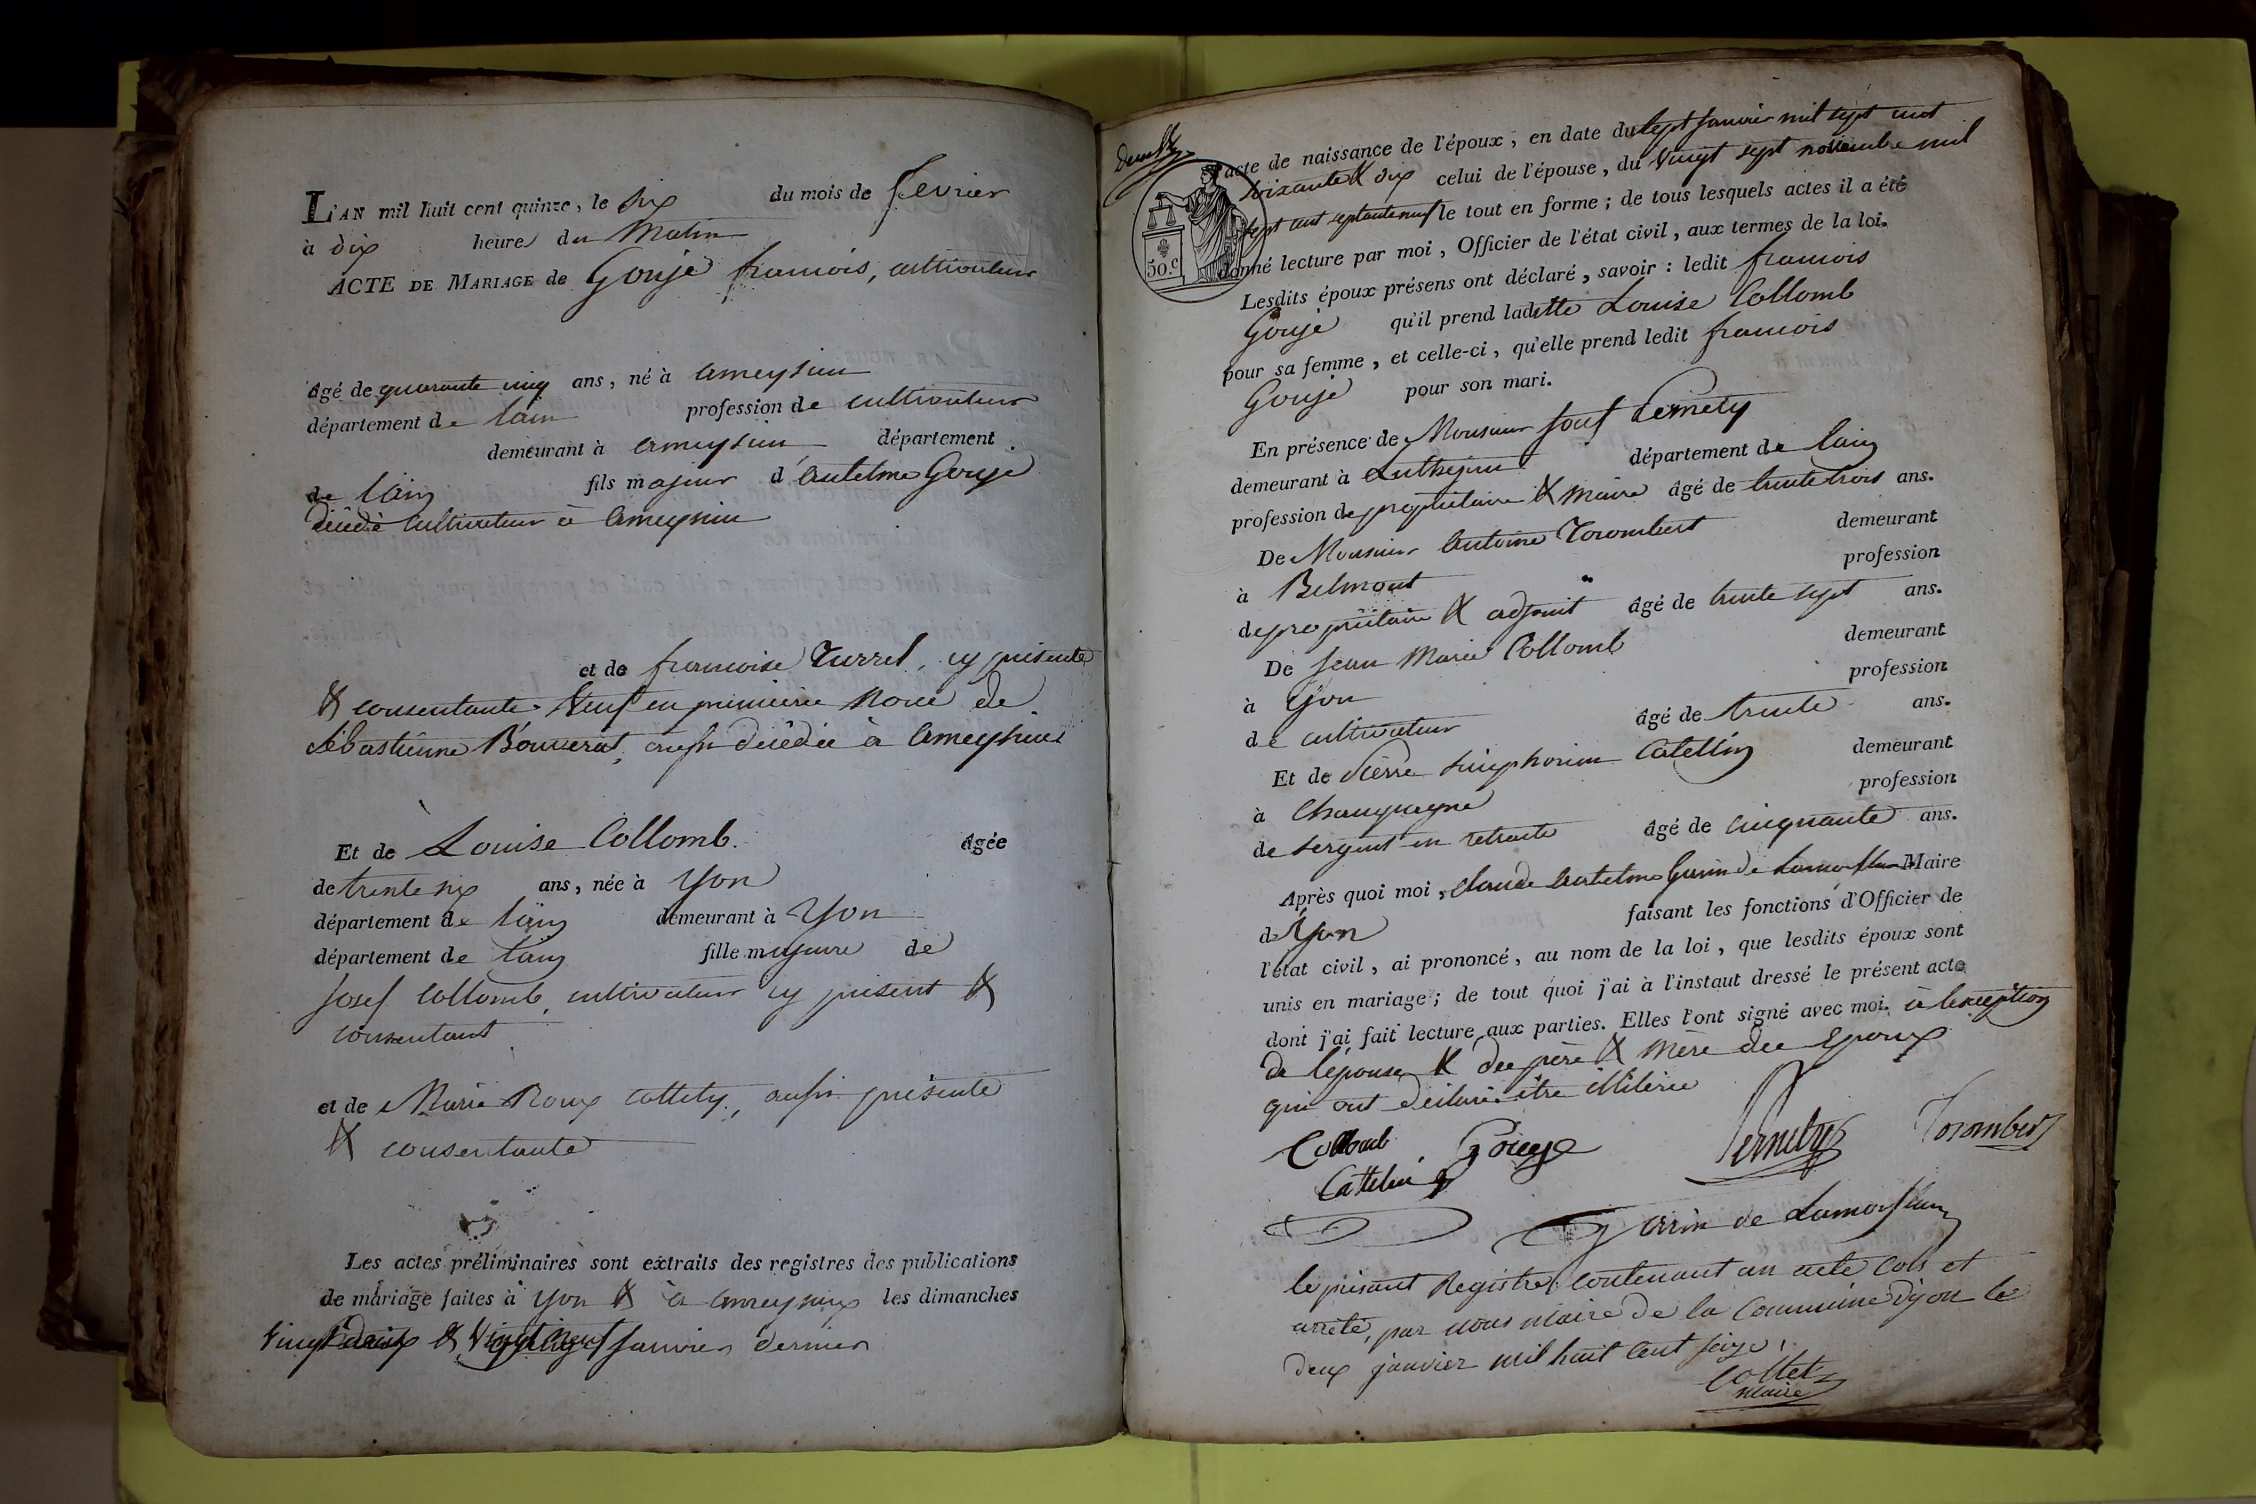 L'AN mil huit cent quinze, le six du mois de fevrier
à dix heures du Matin
ACTE DE MARIAGE de Gouje francois, cultivateur
âgé de quarante cinq ans, né à ameysieu
département de lain profession de cultivateur
demeurant à ameysieu département
de lain fils majeur d'antelme Gouje
décédé cultivateur à ameysieu
et de francoise Turrel, cy présente
& consentante. Veuf en première Noce de
Sébastienne Bouverat, aussi décédée à ameysieu
Et de Louise Collomb. âgée
de trente six ans, née à Yon
département de lain demeurant à Yon
département de lain fille majeure de
Josef Collomb, cultivateur cy présent &
consentant
et de Marie Roux Collety, aussi présente
& consentante
Les actes préliminaires sont extraits des registres des publications
de mariage faites à Yon & à ameysieu les dimanches
Vingt deux & Vingt neuf janvier dernier
deuxf
l'acte de naissance de l'époux, en date du sept janvier mil sept cent
soixante & dix celui de l'épouse, du vingt sept novembre mil
sept cent septante neuf le tout en forme; de tous lesquels actes il a été
donné lecture par moi, Officier de l'état civil, aux termes de la loi.
50.c
Lesdits époux présens ont déclaré, savoir: ledit francois
Gouje qu'il prend ladite Louise Collomb
pour sa femme, et celle-ci, qu'elle prend ledit francois
Gouje pour son mari.
En présence de Monsieur Josef Pernety
demeurant à Luthezieu département de lain
profession de propriétaire & Maire âgé de trente trois ans.
De Monsieur antoine Torombert demeurant
à Belmont profession
de propriétaire & adjoint âgé de trente sept ans.
De Jean Marie Collomb demeurant
à Yon profession
de cultivateur âgé de trente ans.
Et de Pierre simphorien Catellin demeurant
à Champagne profession
de sergent en retraite âgé de cinquante ans.
Après quoi moi, Claude antelme Garin de Lamorflan Maire
de Yon faisant les fonctions d'Officier de
l'état civil, ai prononcé, au nom de la loi, que lesdits époux sont
unis en mariage; de tout quoi j'ai à l'instant dressé le présent acte
dont j'ai fait lecture aux parties. Elles l'ont signé avec moi. à lexception
de lépouse & des père & mère des Epoux
qui ont déclaré être illitérée
Collomb Gouge Pernety Torombert
Catelin
Garin de Lamorflan
le présent Registre contenant un acte Cols et
arreté, par nous maire de la Commune d'yon le
deux janvier mil huit Cent seize.
Collet
maire